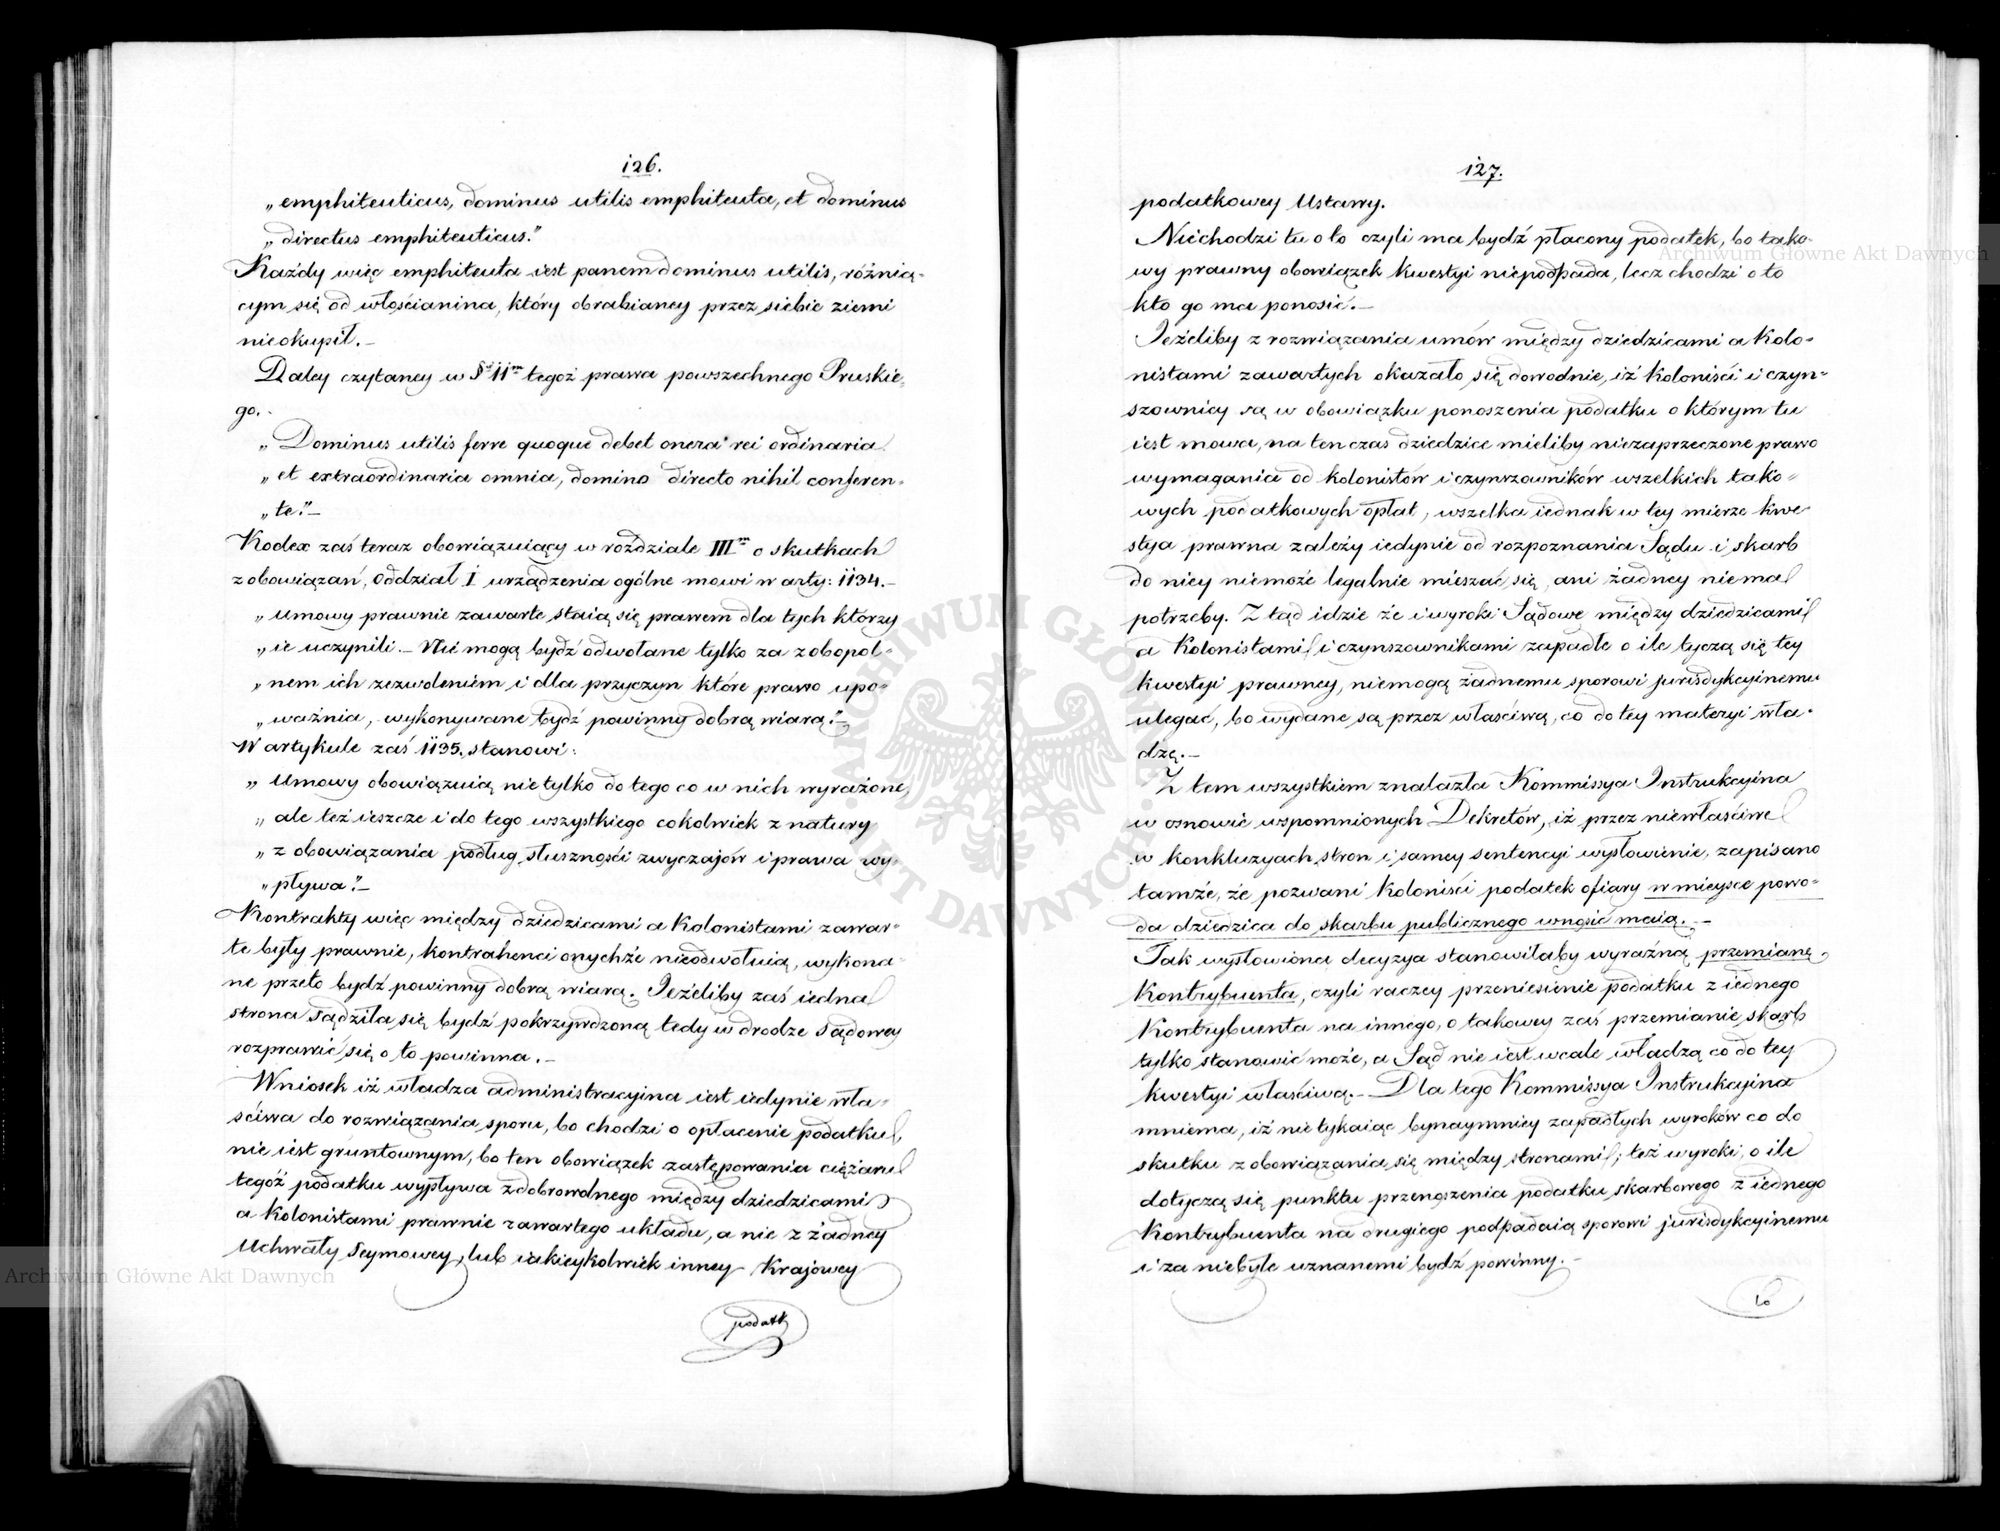 126.
„emphiteuticus, dominus utilis emphiteuta, et dominus
„directus emphiteuticus."
Każdy więc emphiteuta iest panem dominus utilis, różnią-
cym się od włościanina, który obrabianey przez siebie ziemi
nieokupił.—
Daley czytaney w §ie 11m tegoż prawa powszechnego Pruskie-
go.
„Dominus utilis ferre quoque debet onera rei ordinaria
„et extraordinaria omnia, domino directo nihil conferen-
„te."—
Kodex zaś teraz obowiązuiący w rozdziale IIIm o skutkach
zobowiązań, Oddział I urządzenia ogólne mowi w arty: 1134.—
„Umowy prawnie zawarte staią się prawem dla tych którzy
„ie uczynili.— Nie mogą bydź odwołane tylko za zobopol-
„nem ich zezwoleniem i dla przyczyn które prawo upo-
„ważnia, wykonywane bydź powinny dobrą wiarą."—
W artykule zaś 1135. stanowi:
„Umowy obowiązuią nietylko do tego co w nich wyrażone,
„ale też ieszcze i do tego wszystkiego cokolwiek z natury
„zobowiązania podług słuszności zwyczajów i prawa wy-
„pływa."—
Kontrakty więc między dziedzicami a Kolonistami zawar-
te były prawnie, kontrahenci onychże nieodwołuią, wykona-
ne przeto bydź powinny dobrą wiarą. Jeżeliby zaś iedna
strona sądziła się bydź pokrzywdzoną tedy w drodze sądowey
rozprawić się o to powinna.—
Wniosek iż władza administracyina iest iedynie wła-
ściwa do rozwiązania sporu, bo chodzi o opłacenie podatku,
nie iest gruntownym, bo ten obowiązek zastępowania ciężaru
tegóż podatku wypływa zdobrowolnego między dziedzicami
a Kolonistami prawnie zawartego układu, a nie z żadney
Uchwały Seymowey, lub iakieykolwiek inney Krajowey
podatk
127.
podatkowey Ustawy.
Niechodzi tu o to czyli ma bydź płacony podatek, bo tako-
wy prawny obowiązek kwestyi niepodpada, lecz chodzi o to
kto go ma ponosić.—
Jeżeliby z rozwiązania umów między dziedzicami a Kolo-
nistami zawartych okazało się dowodnie, iż Koloniści i czyn-
szownicy są w obowiązku ponoszenia podatku o którym tu
iest mowa, na ten czas dziedzice mieliby niezaprzeczone prawo
wymagania od kolonistów i czynszowników wszelkich tako-
wych podatkowych opłat, wszelka iednak w tey mierze kwe-
stya prawna zależy iedynie od rozpoznania Sądu i skarb
do niey niemoże legalnie mieszać się, ani żadney niema
potrzeby. Z tąd idzie że i wyroki Sądowe między dziedzicami
a Kolonistami i czynszownikami zapadłe o ile tyczą się tey
kwestyi prawney, niemogą żadnemu sporowi jurisdykcyinemu
ulegać, bo wydane są przez właściwą, co do tey materyi wła-
dzę.—
Z tem wszystkiem znalazła Kommissya Instrukcyina
w osnowie wspomnionych Dekretów, iż przez niewłaściwe
w konkluzyach stron i samey sentencyi wysłowienie, zapisano
tamże, że pozwani Koloniści podatek ofiary w mieysce powo-
da dziedzica do skarbu publicznego wnosić maią.—
Tak wysłowiona decyzya stanowiłaby wyraźną przemianę
Kontrybuenta, czyli raczey przeniesienie podatku z iednego
Kontrybuenta na innego, o takowey zaś przemianie skarb
tylko stanowić może, a Sąd nie iest wcale władzą co do tey
kwestyi właściwą.— Dla tego Kommissya Instrukcyina
mniema, iż nie tykaiąc bynaymniey zapadłych wyroków co do
skutku zobowiązania się między stronami; też wyroki, o ile
dotyczą się punktu przenoszenia podatku skarbowego z iednego
Kontrybuenta na drugiego podpadaią sporowi jurisdykcyinemu
i za niebyłe uznanemi bydź powinny.—
Archiwum Główne Akt Dawnych
Archiwum Główne Akt Dawnych
ARCHIWUM GŁÓWNE AKT DAWNYCH